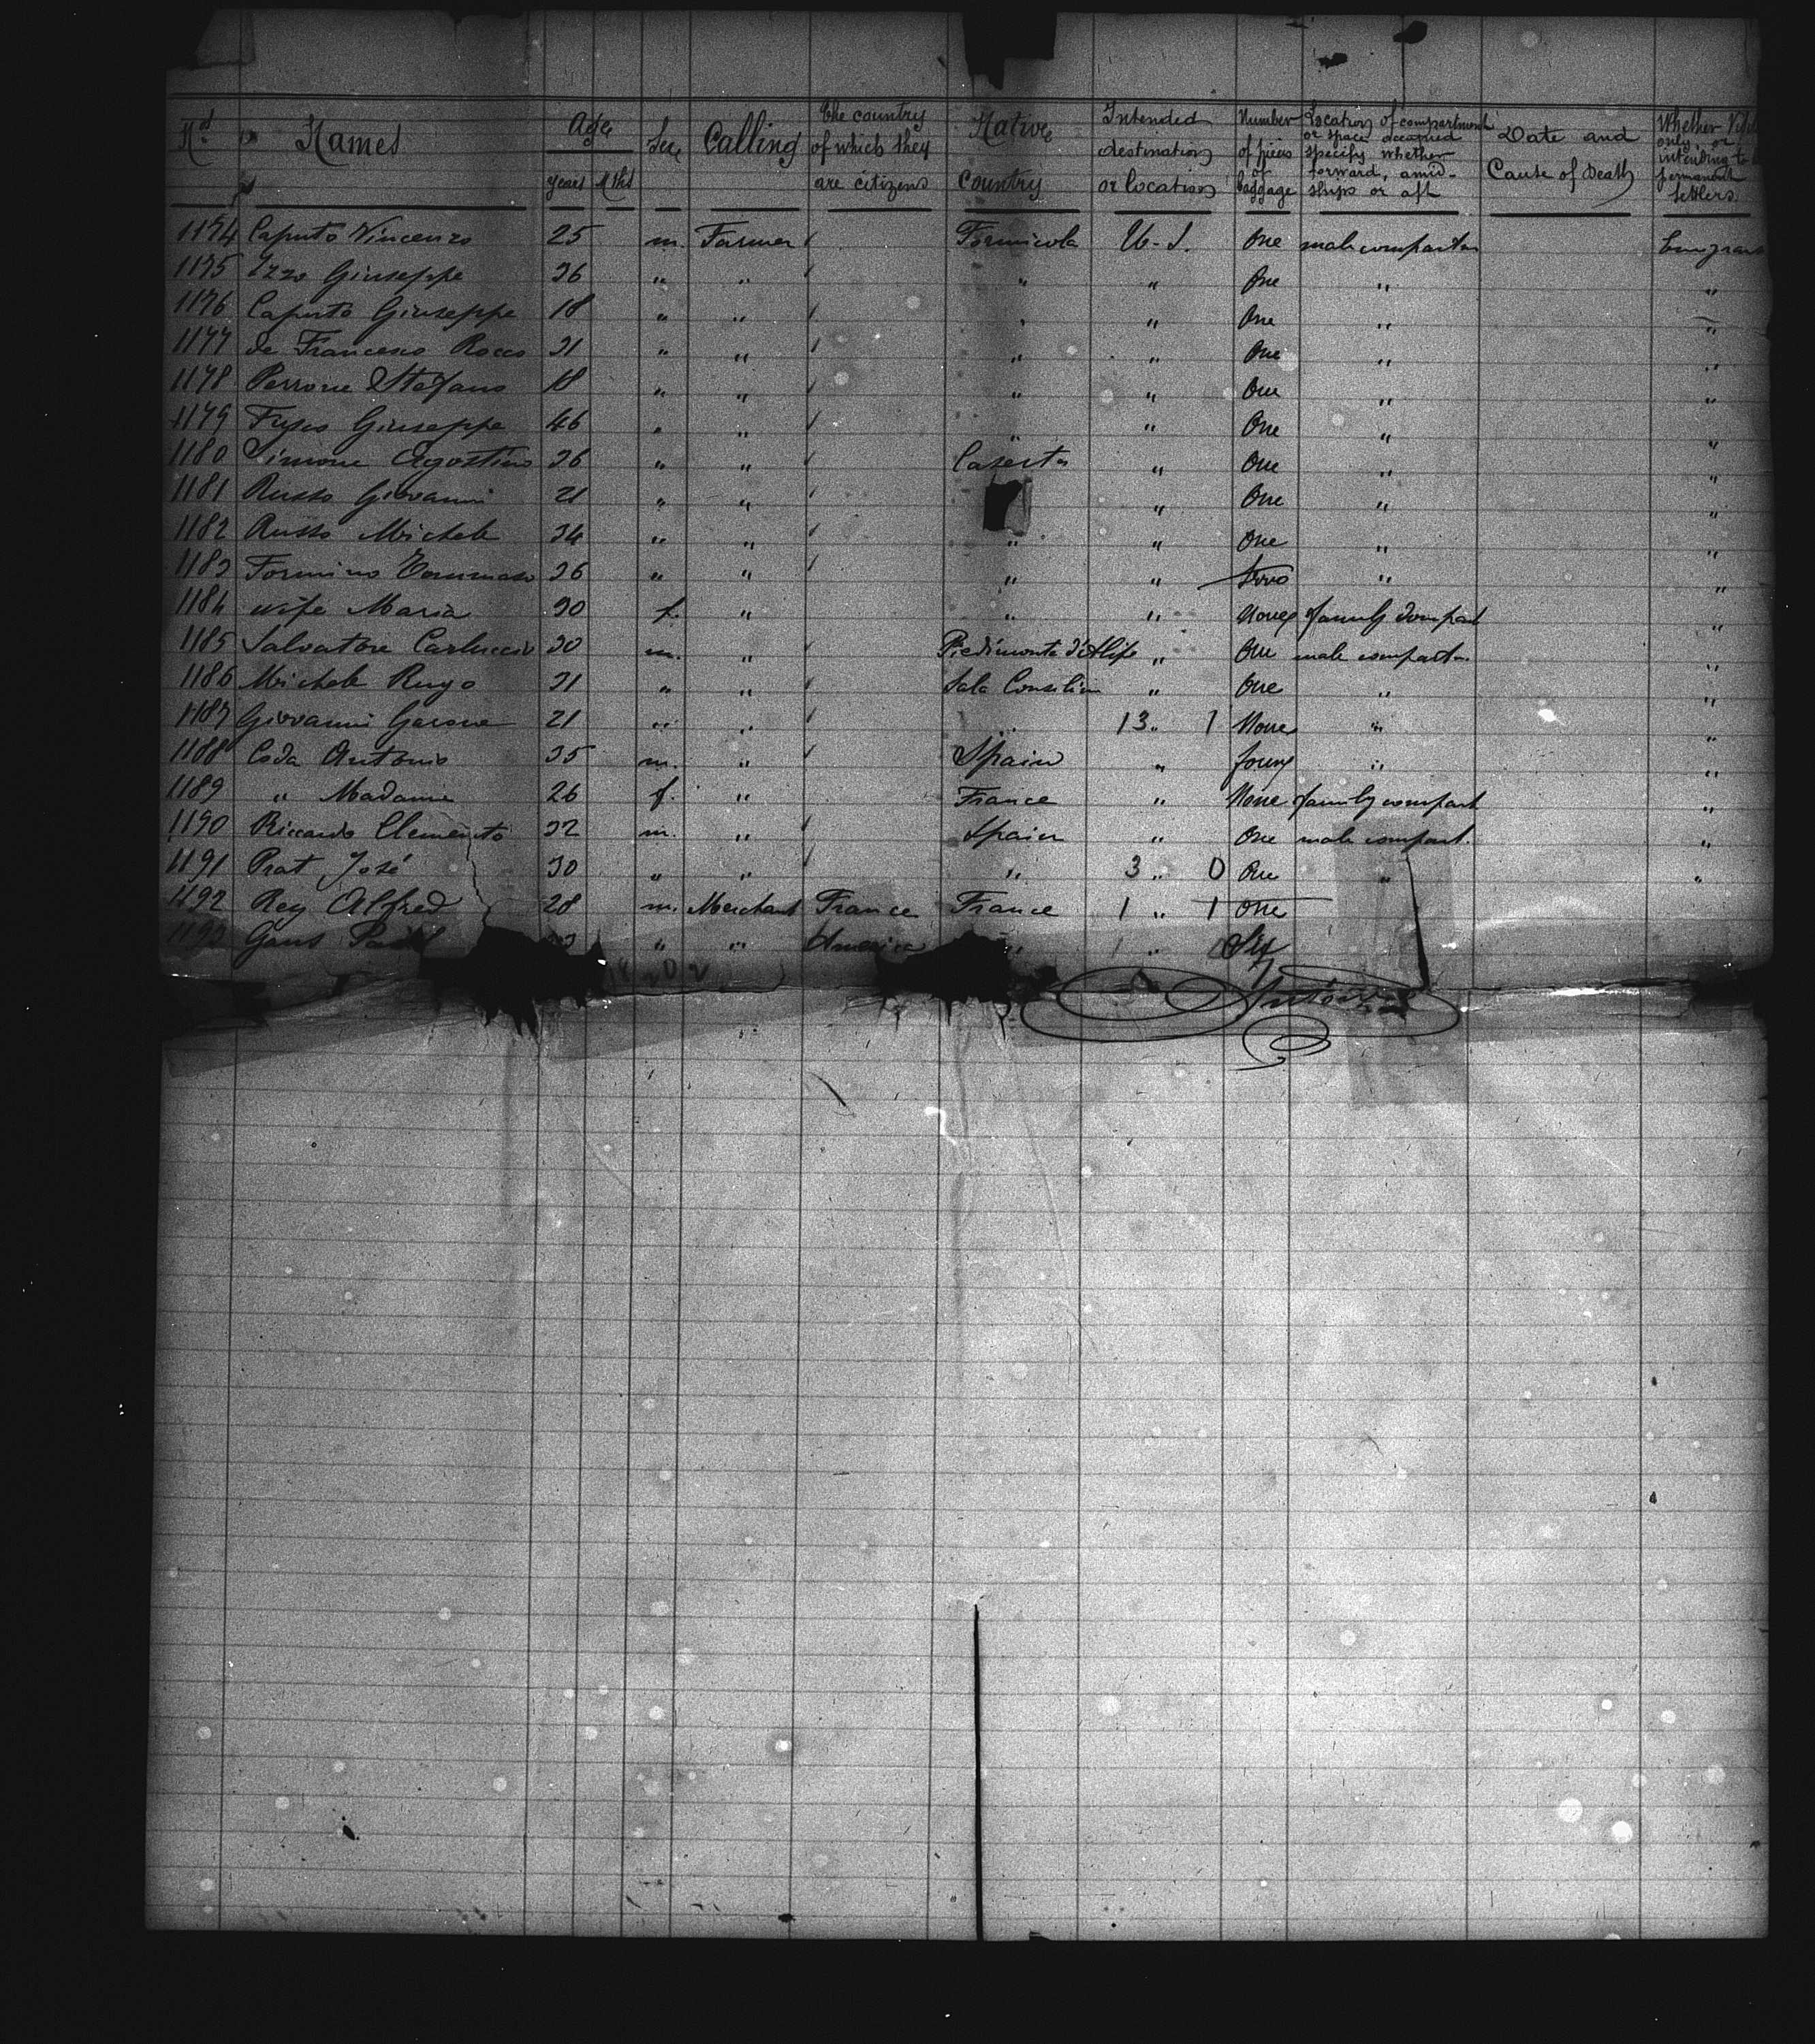 Nos Names Age years Mths Sex Calling The country of which they are citizens Native Country Intended destination or location Number of pieces of baggage Location of compartment or space occupied specify whether forward, amid-ships or aft Date and Cause of Death Whether only, or intending to permanent Settlers
1174 Caputo Vincenzo 25 m. Farmer Formicola U.S. One male compartm
1175 Izzo Giuseppe 36 " " " " One " "
1176 Caputo Giuseppe 18 " " " " One " "
1177 de Francesco Rocco 31 " " " " One " "
1178 Perrone Stefano 18 " " " " One " "
1179 Fusco Giuseppe 46 " " " " One " "
1180 Simone Agostino 36 " " Caserta " One " "
1181 Russo Giovanni 21 " " " One " "
1182 Russo Michele 34 " " " " One " "
1183 Tommaso 36 " " " " Two " "
1184 wife Maria 30 f. " " " None family compart "
1185 Salvatore Carluccio 30 m. " Piedimonte d'Alife " One male compart. "
1186 Michele 31 " " Sala Consilina " One " "
1187 Giovanni 21 " " " 13 " 1 None " "
1188 Coda Antonio 35 m. " Spain " four " "
1189 " Madame 26 f. " France " None family compart "
1190 Riccardo Clemento 32 m. " Spain " One male compart. "
1191 Prat José 30 " " " 3 " 0 One " "
1192 Rey Alfred 28 m. Merchant France France 1 " 1 One
1193 Gans " " America " " Six